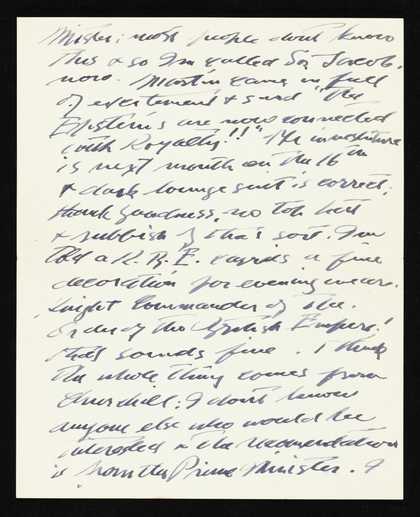 Mister; most people don't know
this & so I'm called Sir Jacob,
now. Martin came in full
of excitement & said "The
Epsteins are now connected
with Royalty!!" The investiture
is next month on the 16th
& dark lounge suit is correct,
thank goodness, no top hat
& rubbish of that sort. I'm
told a K.B.E. carries a fine
decoration for evening wear.
Knight Commander of the
Order of the British Empire!
that sounds fine. I think
the whole thing comes from
Churchill; I don't know
anyone else who would be
interested & the recomendation
is from the Prime Minister. I